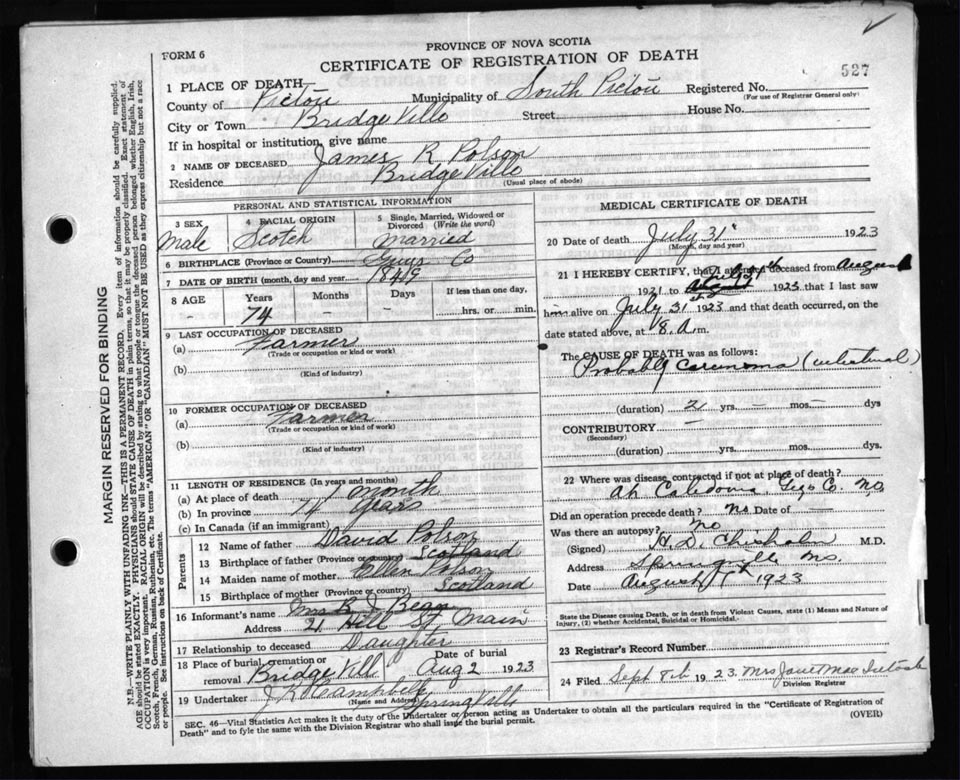 PROVINCE OF NOVA SCOTIA
FORM 6
CERTIFICATE OF REGISTRATION OF DEATH
527
1 PLACE OF DEATH—
County of Pictou Municipality of South Pictou Registered No.
(For use of Registrar General only)
City or Town Bridge Ville Street House No.
If in hospital or institution, give name
2 NAME OF DECEASED James R Polson
Residence Bridge Ville
(Usual place of abode)
PERSONAL AND STATISTICAL INFORMATION
3 SEX Male
4 RACIAL ORIGIN Scotch
5 Single, Married, Widowed or Divorced (Write the word) Married
6 BIRTHPLACE (Province or Country) Guys Co
7 DATE OF BIRTH (month, day and year) 1849
8 AGE Years 74 Months — Days — If less than one day, hrs. or min.
9 LAST OCCUPATION OF DECEASED
(a) Farmer
(Trade or occupation or kind of work)
(b)
(Kind of industry)
10 FORMER OCCUPATION OF DECEASED
(a) Farmer
(Trade or occupation or kind of work)
(b)
(Kind of industry)
11 LENGTH OF RESIDENCE (In years and months)
(a) At place of death 1 month
(b) In province 74 years
(c) In Canada (if an immigrant)
Parents
12 Name of father David Polson
13 Birthplace of father (Province or country) Scotland
14 Maiden name of mother Ellen Polson
15 Birthplace of mother (Province or country) Scotland
16 Informant's name Mrs B. J. Bean
Address 21 Hill St. Main
17 Relationship to deceased Daughter
18 Place of burial, cremation or removal Bridge Vill Date of burial Aug 2 1923
19 Undertaker J R Campbell Spring Ville
(Name and Address)
MEDICAL CERTIFICATE OF DEATH
20 Date of death July 31st 1923
(Month, day and year)
21 I HEREBY CERTIFY, that I attended deceased from August
1921 to July 1923 that I last saw
him alive on July 31st 1923 and that death occurred, on the
date stated above, at 8 a.m.
The CAUSE OF DEATH was as follows:
Probably Carcinoma (intestinal)
(duration) 2 yrs. — mos. — dys
CONTRIBUTORY —
(Secondary)
(duration) yrs. mos. dys.
22 Where was disease contracted if not at place of death?
At Caledonia, Co. N.S.
Did an operation precede death? No Date of —
Was there an autopsy? No
(Signed) H. D. Chisholm M.D.
Address Springville N.S.
Date August 1923
State the Disease causing Death, or in death from Violent Causes, state (1) Means and Nature of Injury, (2) whether Accidental, Suicidal or Homicidal.
23 Registrar's Record Number
24 Filed Sept 8th 1923. Mrs Janet Mac Intosh
Division Registrar
SEC. 46—Vital Statistics Act makes it the duty of the Undertaker or person acting as Undertaker to obtain all the particulars required in the "Certificate of Registration of
Death" and to fyle the same with the Division Registrar who shall issue the burial permit.
(OVER)
MARGIN RESERVED FOR BINDING
N.B.—WRITE PLAINLY WITH UNFADING INK—THIS IS A PERMANENT RECORD. Every item of information should be carefully supplied.
AGE should be stated EXACTLY. PHYSICIANS should STATE CAUSE OF DEATH in plain terms, so that it may be properly classified. Exact statement of
OCCUPATION is very important. RACIAL ORIGIN will be described by stating to what people or tongue the deceased person belonged whether English, Irish,
Scotch, French, German, Russian, Ruthenian, etc. The terms "AMERICAN" OR "CANADIAN" MUST NOT BE USED as they express citizenship but not a race
or people. See instructions on back of Certificate.